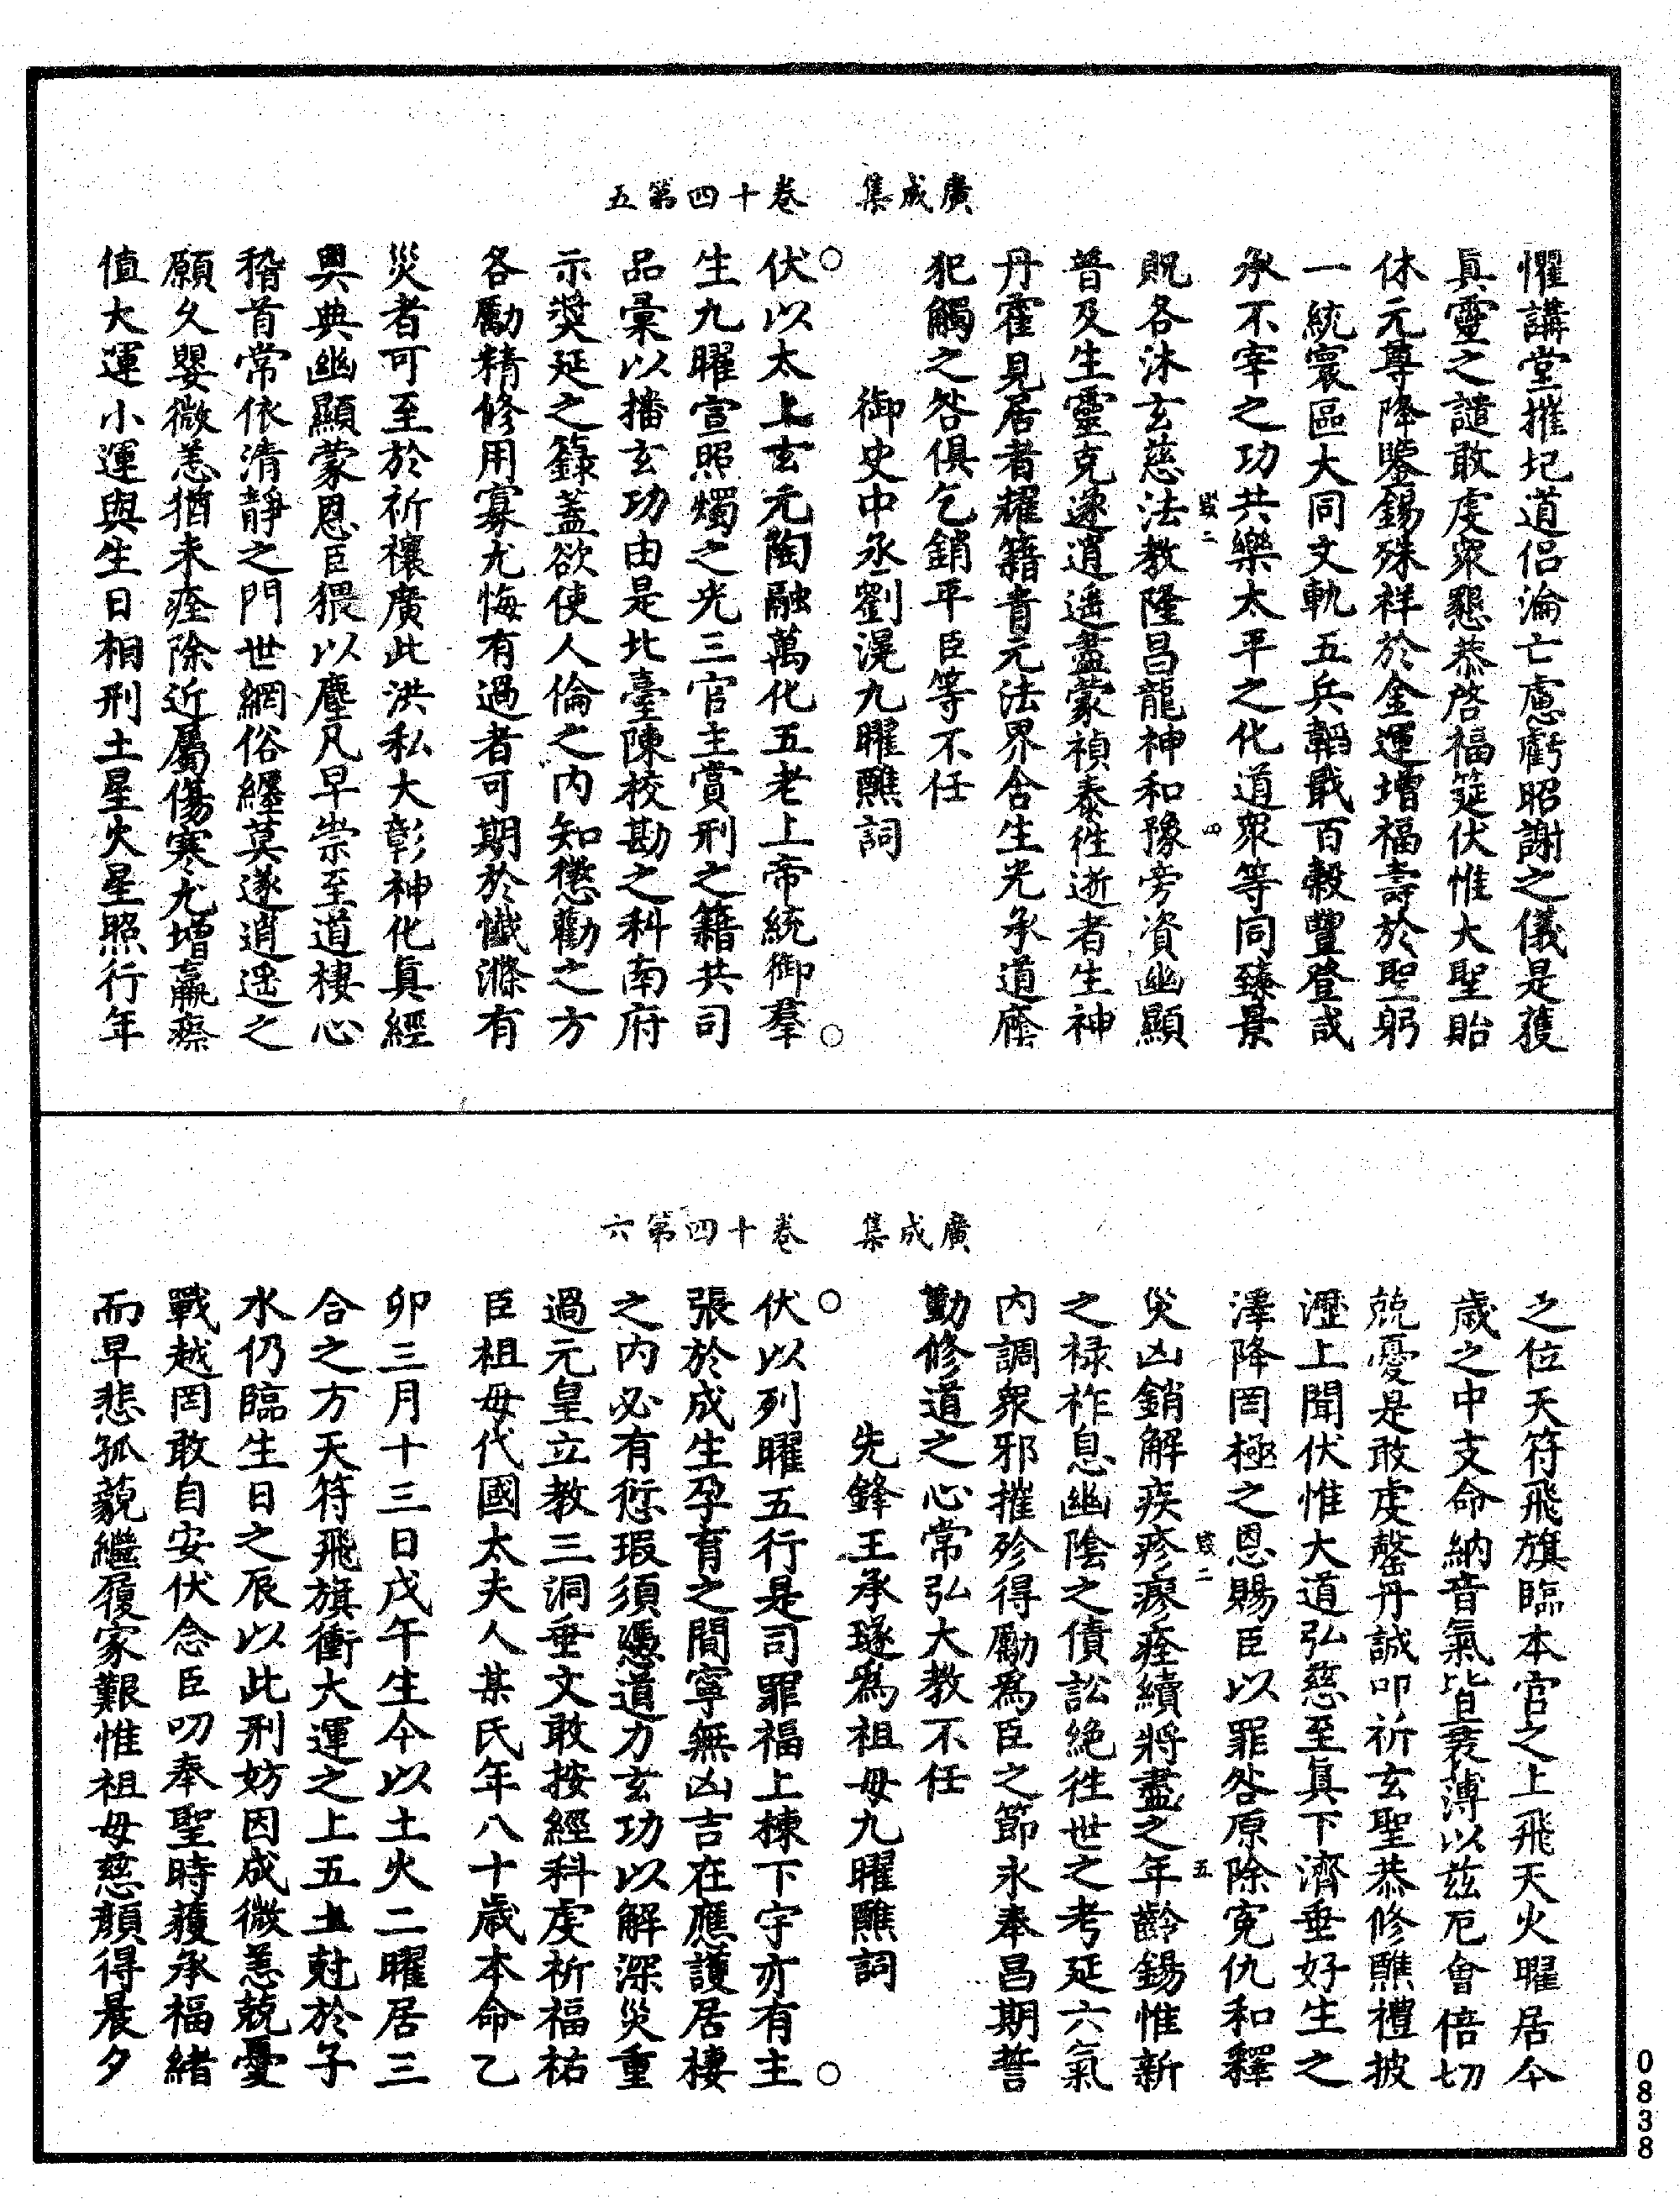 廣成集　卷十四第五
懼講堂摧圮道侶淪亡慮虧昭謝之儀是獲
眞靈之譴敢虔衆懇恭啓福筵伏惟大聖貽
休元尊降鑒錫殊祥於金運增福壽於聖躬
一統寰區大同文軌五兵韜戢百穀豐登或
承不宰之功共樂太平之化道衆等同臻景
貺各沐玄慈法教隆昌龍神和豫旁資幽顯
普及生靈克遂逍遥盡蒙禎泰徃逝者生神
丹霍見居者耀籍青元法界含生光承道廕
犯觸之咎俱乞銷平臣等不任
御史中丞劉滉九曜醮詞
伏以太上玄元陶融萬化五老上帝統御羣
生九曜宣照燭之光三官主賞刑之籍共司
品彙以播玄功由是北臺陳校勘之科南府
示奬延之籙蓋欲使人倫之内知懲勸之方
各勵精修用寡尤悔有過者可期於懺滌有
災者可至於祈禳廣此洪私大彰神化眞經
輿典幽顯蒙恩臣猥以塵凡早崇至道棲心
稽首常依清靜之門世網俗纏莫遂逍遥之
願久嬰微恙猶未痊除近屬傷寒尤增羸瘵
值大運小運與生日相刑土星火星照行年
廣成集　卷十四第六
之位天符飛旗臨本宮之上飛天火曜居今
歲之中支命納音氣皆衰薄以兹厄會倍切
兢憂是敢虔罄丹誠叩祈玄聖恭修醮禮披
瀝上聞伏惟大道弘慈至眞下濟垂好生之
澤降罔極之恩賜臣以罪咎原除寃仇和釋
災凶銷解疾疹瘳痊續將盡之年齡錫惟新
之禄祚息幽陰之債訟絶徃世之考延六氣
内調衆邪摧殄得勵爲臣之節永奉昌期誓
勤修道之心常弘大教不任
先鋒王承璲爲祖母九曜醮詞
伏以列曜五行是司罪福上棟下宇亦有主
張於成生孕育之間寧無凶吉在應護居棲
之内必有愆瑕須憑道力玄功以解深災重
過元皇立教三洞垂文敢按經科虔祈福祐
臣祖母代國太夫人某氏年八十歲本命乙
卯三月十三日戊午生今以土火二曜居三
合之方天符飛旗衝大運之上五土尅於子
水仍臨生日之辰以此刑妨因成微恙兢憂
戰越罔敢自安伏念臣叨奉聖時獲承福緒
而早悲孤藐繼履家艱惟祖母慈顔得晨夕
0838